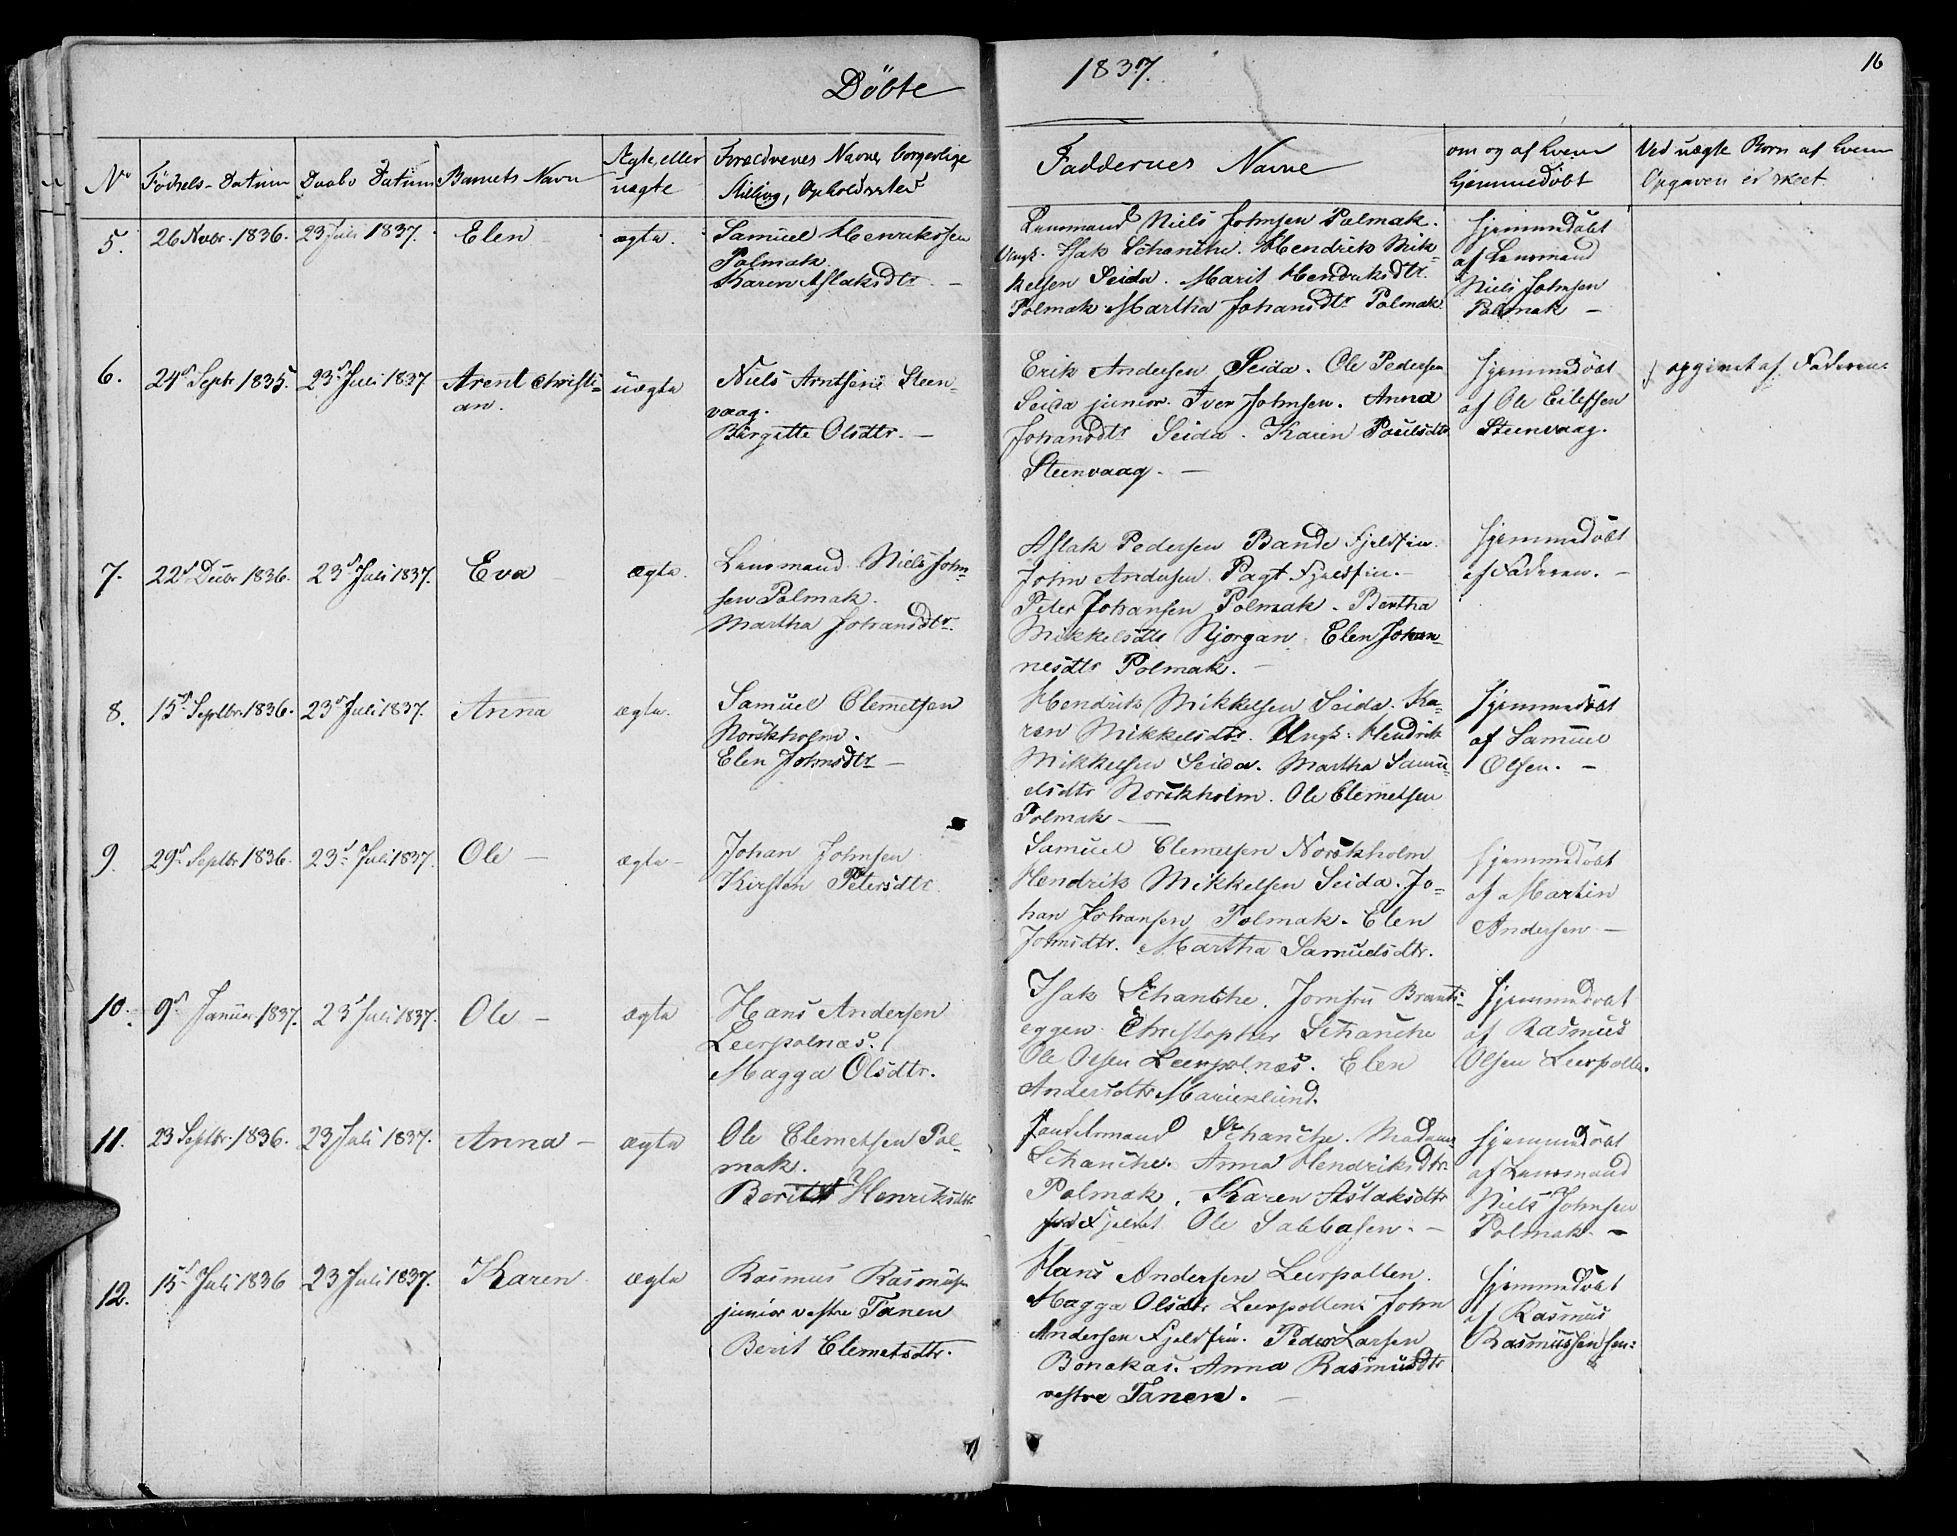 Döbte
1837.
16
No
Födsels-Datum
Daabs Datum
Barnets Navn
Ægte, eller
uægte
Forældrenes Navne, borgerlige
Stilling, Opholdssted
Faddernes Navne
om og af hvem
hjemmedøbt
Ved uægte Born af hvem
Opgaven er skeet.
5.
26 Novbr. 1836.
23 Juli 1837.
Elen
ægte.
Samuel Henriksen
Polmak.
Karen Aslaksdtr. —
Lensmand Niels Johnsen Polmak.
Ungk. Isak Schanche. Hendrik Mik-
kelsen Seida. Marit Hendriksdtr.
Polmak Martha Johansdtr Polmak
Hjemmedöbt
af Lensmand
Niels Johnsen
Polmak —
6.
24d Septr 1835.
23d Juli 1837
Arent Christi-
an.
uægte
Niels Arntsen Steen-
vaag.
Birgitte Olsdtr. —
Erik Andersen Seida. Ole Pedersen
Seida junior. Iver Johnsen. Anna
Johansdtr Seida. Karen Poulsdtr
Steenvaag. —
Hjemmedöbt
af Ole Eilefsen
Steenvaag.
opgivet af Faderen.
7.
22d Decbr 1836.
23d Juli 1837.
Eva
ægte.
Lensmand Niels John-
sen Polmak.
Martha Johansdtr.
Aslak Pedersen Bande Fjeldfin.
John Andersen Pagt Fjeldfin. —
Peter Johansen Polmak. Bertha
Mikkelsdtr Njorgan. Elen Johan-
nesdtr Polmak. —
Hjemmedöbt
af Faderen. —
8.
15d Septbr. 1836.
23d Juli 1837.
Anna
ægte.
Samuel Clemetsen
Norskholm.
Elen Johnsdtr —
Hendrik Mikkelsen Seida. Ka-
ren Mikkelsdtr. Ungk. Hendrik
Mikkelsen Seida. Martha Samu-
elsdtr Norskholm. Ole Clemetsen
Polmak —
Hjemmedöbt
af Samuel
Olsen. —
9.
29d Septbr. 1836.
23d Juli 1837.
Ole —
ægte —
Johan Johnsen
Kirsten Petersdtr.
Samuel Clemetsen Norskholm
Hendrik Mikkelsen Seida. Jo-
han Johansen Polmak. Elen
Johnsdtr. Martha Samuelsdtr.
Hjemmedöbt
af Martin
Andersen —
10.
9d Januar 1837.
23d Juli 1837.
Ole —
ægte
Hans Andersen
Leerpolnæs.
Magga Olsdtr.
Isak Schanche. Jomfru Brandt-
eggen. Christopher Schanche
Ole Olsen Leerpolnæs. Elen
Andersdtr Marienlund.
Hjemmedöbt
af Rasmus
Olsen Leerpollen.
11.
23 Septbr. 1836.
23 Juli 1837.
Anna —
ægte
Ole Clemetsen Pol-
mak.
Berit Henriksdtr
Handelsmand Schanche. Madame
Schanche. Anna Hendriksdtr.
Polmak. Karen Aslaksdtr
fra Fjeldet. Ole Sabbasen. —
Hjemmedöbt
af Lensmand
Niels Johnsen
Polmak —
12.
15d Juli 1836
23 Juli 1837.
Karen
ægte
Rasmus Rasmusen
junior vestre Tanen
Berit Clemetsdtr.
Hans Andersen Leerpollen.
Magga Olsdtr Leerpollen. John
Andersen Fjeldfin. Peder Larsen
Bonakas. Anna Rasmusdtr
vestre Tanen. —
Hjemmedöbt
af Rasmus
Rasmussen sen: